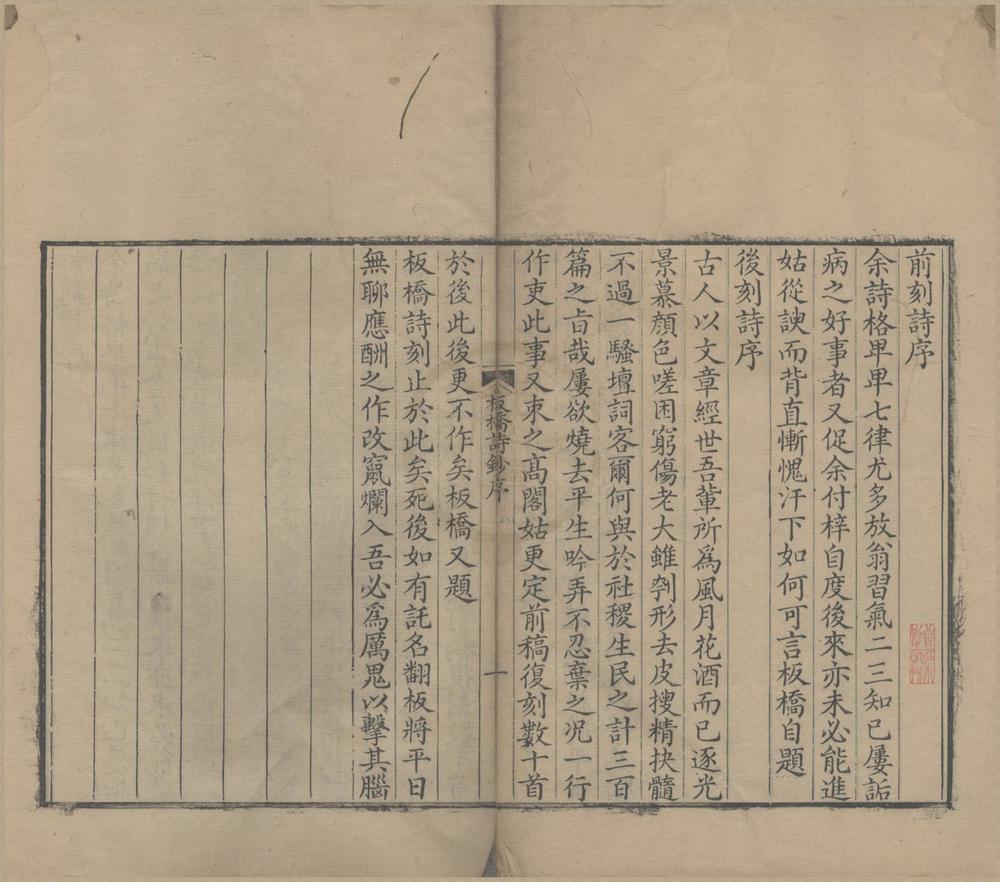 前刻詩序
余詩格卑卑七律尤多放翁習氣二三知己屢詬
病之好事者又促余付梓自度後來亦未必能進
姑從諛而背直慚愧汗下如何可言板橋自題
後刻詩序
古人以文章經世吾輩所為風月花酒而已逐光
景慕顏色嗟困窮傷老大雖刳形去皮搜精抉髓
不過一騷壇詞客爾何與於社稷生民之計三百
篇之旨哉屢欲燒去平生吟弄不忍棄之况一行
作吏此事又束之高閣姑更定前稿復刻數十首
於後此後更不作矣板橋又題
板橋詩鈔序
一
板橋詩刻止於此矣死後如有託名翻板將平日
無聊應酬之作改竄爛入吾必為厲鬼以擊其腦